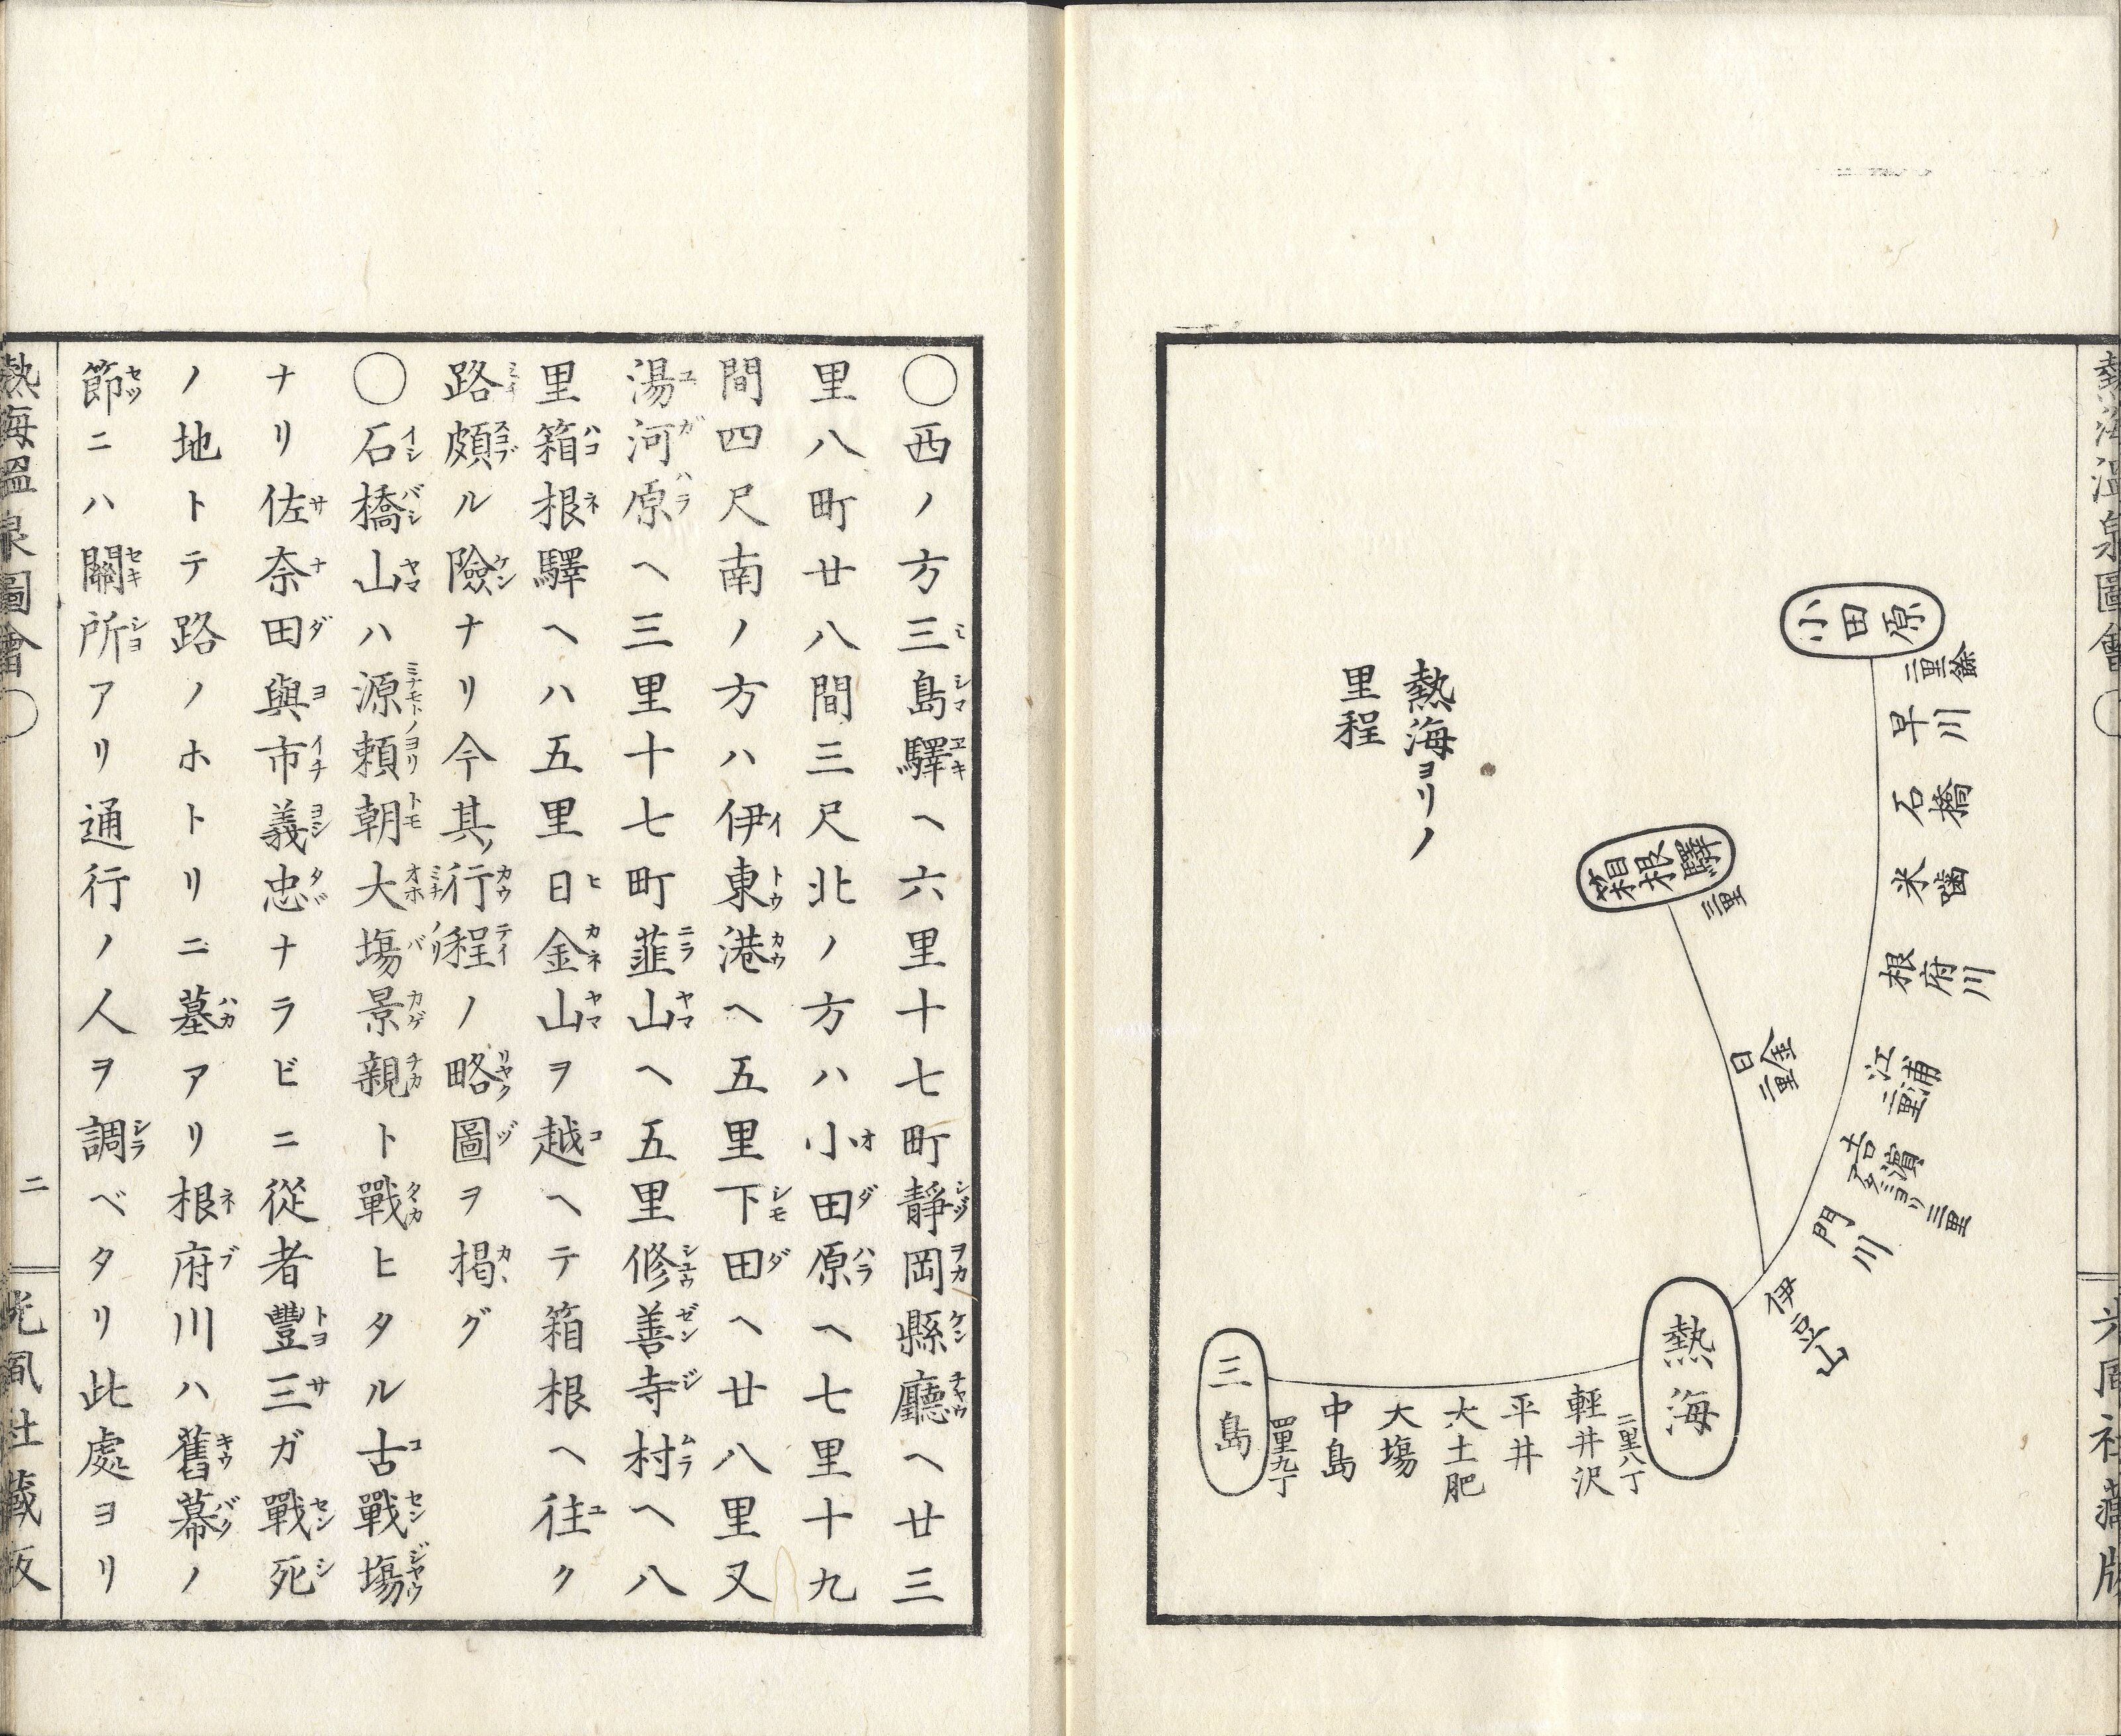 熱海温泉圖會
光風社藏版
熱海ヨリノ
里程
小田原
二里餘
早川
石橋
米噛
根府川
江浦
二里
吉濵
アタミヨリ三里
門川
伊豆山
箱根驛
三里
日金
二里
熱海
二里八丁
輕井沢
平井
大土肥
大塲
中島
四里九丁
三島
〇西ノ方三島驛ヘ六里十七町靜岡縣廳ヘ廿三
里八町廿八間三尺北ノ方ハ小田原ヘ七里十九
間四尺南ノ方ハ伊東港ヘ五里下田ヘ廿八里又
湯河原ヘ三里十七町韮山ヘ五里修善寺村ヘ八
里箱根驛ヘハ五里日金山ヲ越ヘテ箱根ヘ往ク
路頗ル險ナリ今其ノ行程ノ略圖ヲ掲グ
〇石橋山ハ源頼朝大塲景親ト戰ヒタル古戰塲
ナリ佐奈田與市義忠ナラビニ從者豐三ガ戰死
ノ地トテ路ノホトリニ墓アリ根府川ハ舊幕ノ
節ニハ關所アリ通行ノ人ヲ調ベタリ此處ヨリ
熱海温泉圖會〇
二
光風社藏版